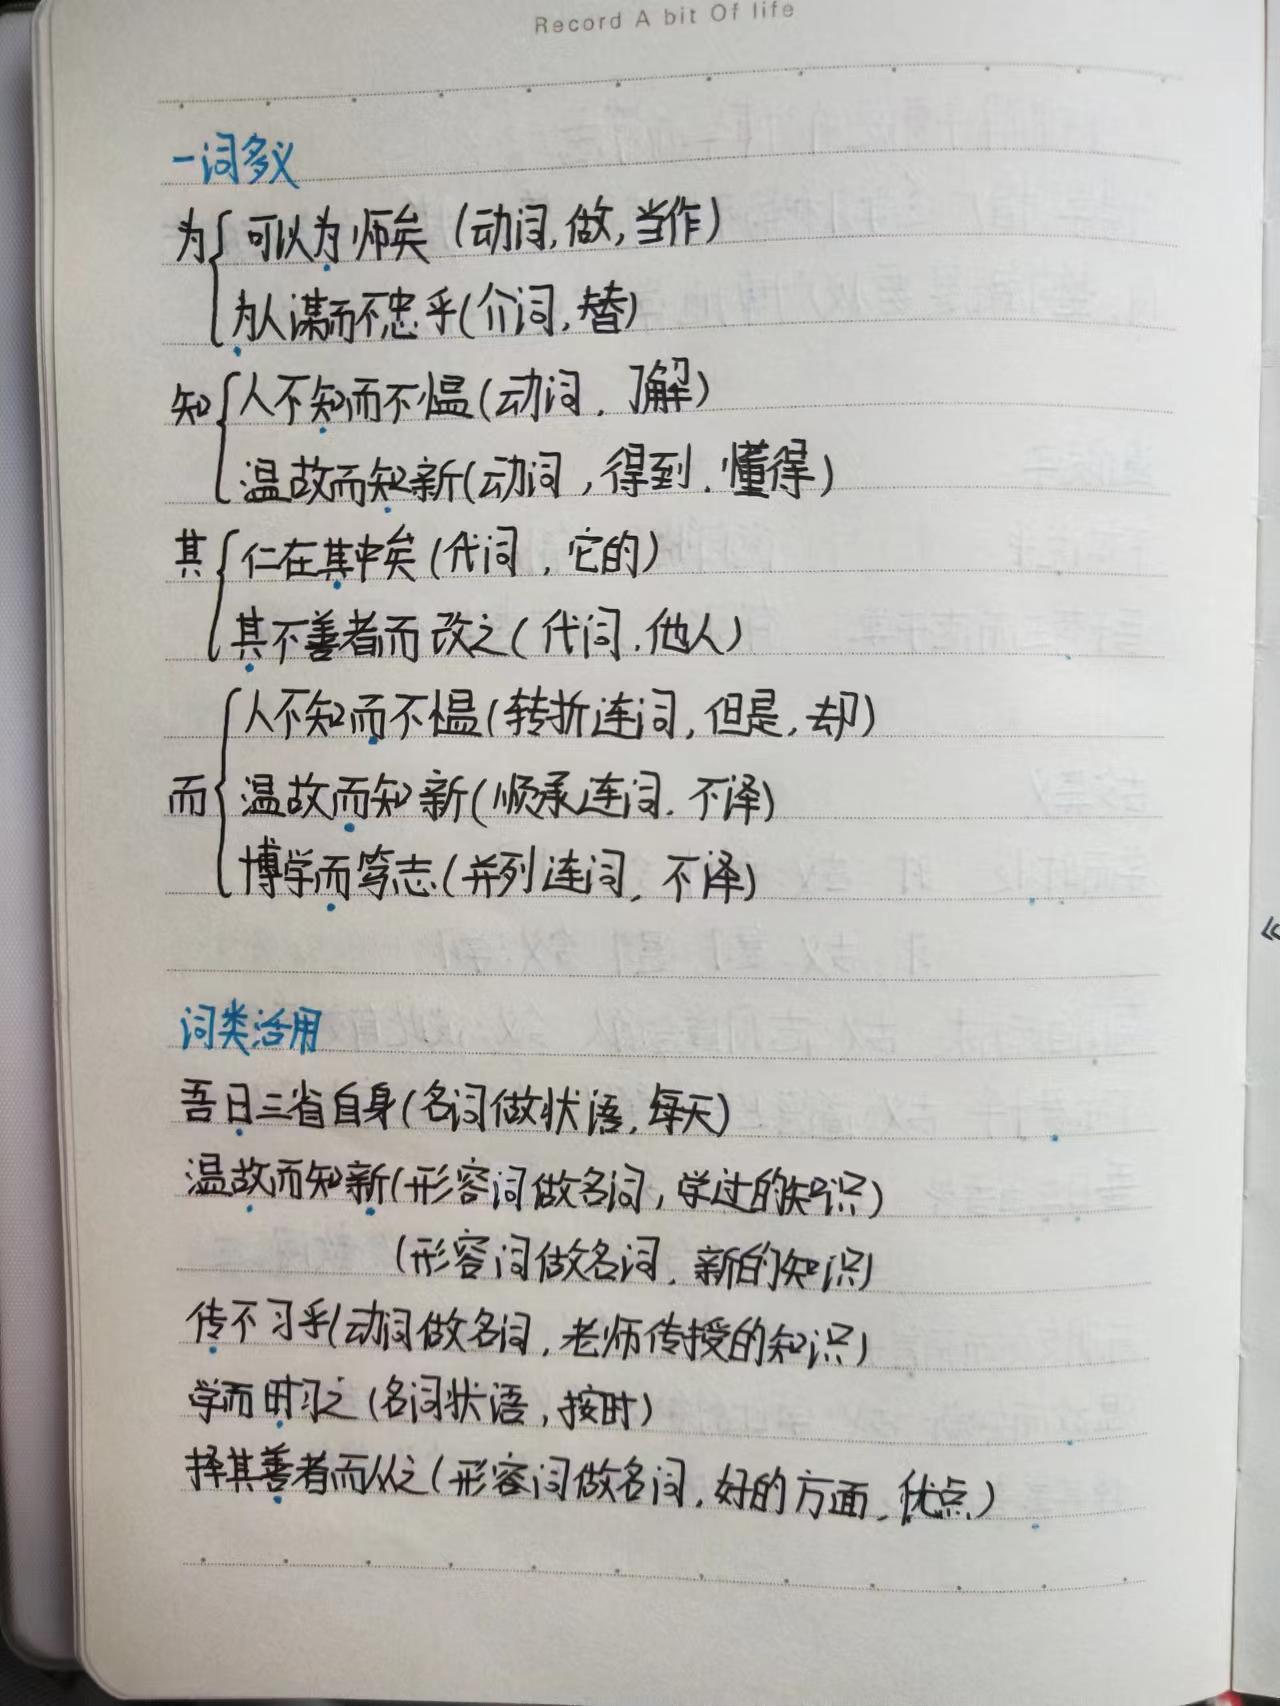 Record A bit Of life
一词多义
为 可以为师矣（动词,做,当作）
为人谋而不忠乎(介词,替)
知 人不知而不愠(动词,了解)
温故而知新(动词,得到.懂得)
其 仁在其中矣(代词,它的)
其不善者而改之(代词.他人)
人不知而不愠(转折连词,但是,却)
而 温故而知新(顺承连词.不译)
博学而笃志(并列连词,不译)
词类活用
吾日三省自身(名词做状语,每天)
温故而知新(形容词做名词,学过的知识)
(形容词做名词,新的知识)
传不习乎(动词做名词,老师传授的知识)
学而时习之(名词状语,按时)
择其善者而从之(形容词做名词,好的方面,优点)
《